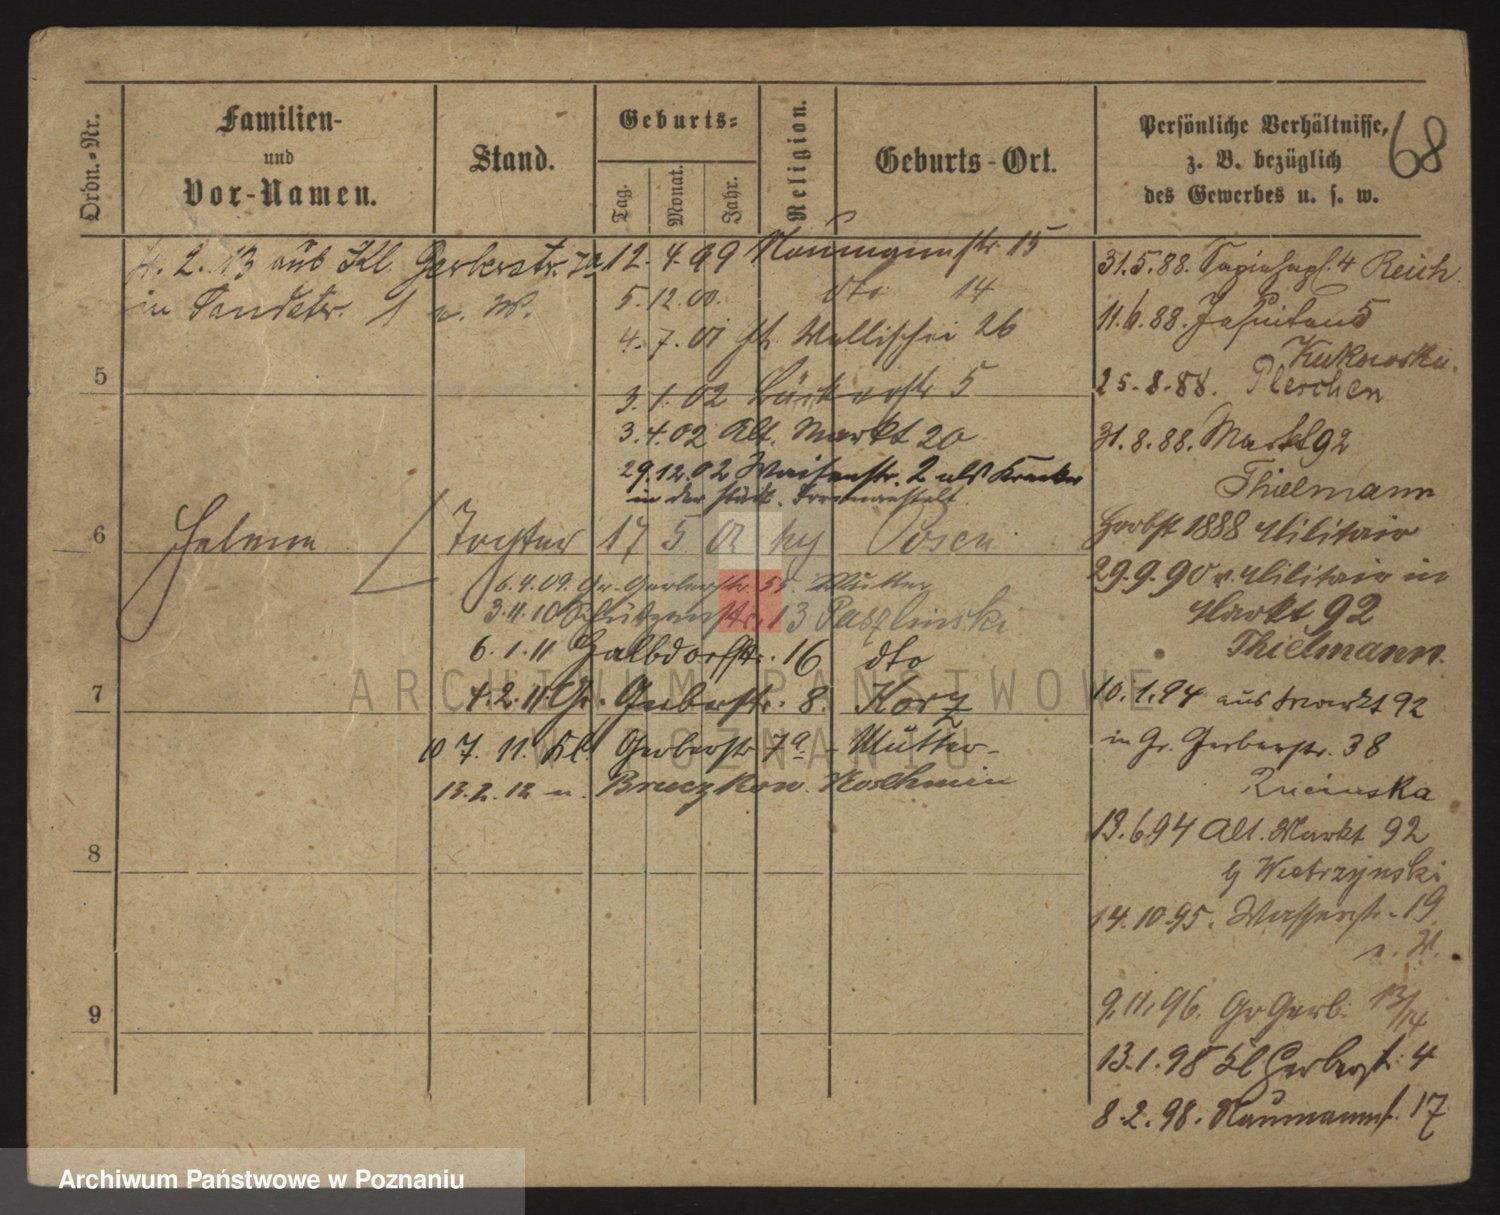 Ordn.-Nr.
Familien-
und
Vor-Namen.
Stand.
Geburts-
Tag.
Monat.
Jahr.
Religion.
Geburts-Ort.
Persönliche Verhältnisse,
z. B. bezüglich
des Gewerbes u. s. w.
68
4. 2. 13 aus Kl. Gerberstr. 7a
in Sandstr. 1 n. W.
12. 4. 99 Naumannstr. 15
5. 12. 00. dto 14
4. 7. 01 Wallischei 26
3. 1. 02 Bäckerstr. 5
3. 4. 02 Alt. Markt 20
29. 12. 02 Waisenstr. 2 als Kranker
in der städt. Irrenanstalt
5
6
Helene Tochter 17 5 Posen
6. 4. 09. Gr. Gerberstr. 55. Mutter
3. 11. 10 Schützenstr. 13 Paszlinski
6. 1. 11 Halbdorfstr. 16 dto
4. 2. 11 Gr. Gerberstr. 8. Korz
7
10 7. 11. Kl. Gerberstr. 7a - Mutter-
13. 2. 12 n. Bruczkow Koschmin
8
9
31. 5. 88. 4 Reich
11. 6. 88. 5
Kukowska.
25. 8. 88. Pleschen
31. 8. 88. Markt 92
Thielmann
Herbst 1888 Militair
29. 9. 90 v. Militair in
Markt 92
Thielmann.
10. 1. 94 aus Markt 92
in Gr. Gerberstr. 38
Rucinska
13. 6 94 Alt. Markt 92
b/ Wietrzynski
14. 10 95. Wasserstr. 19
n. W.
9. 11. 96. Gr Gerb. 13/14
13. 1. 98 Kl Gerberstr. 4
8. 2. 98. Naumannst. 17
ARCHIWUM PAŃSTWOWE
W POZNANIU
Archiwum Państwowe w Poznaniu